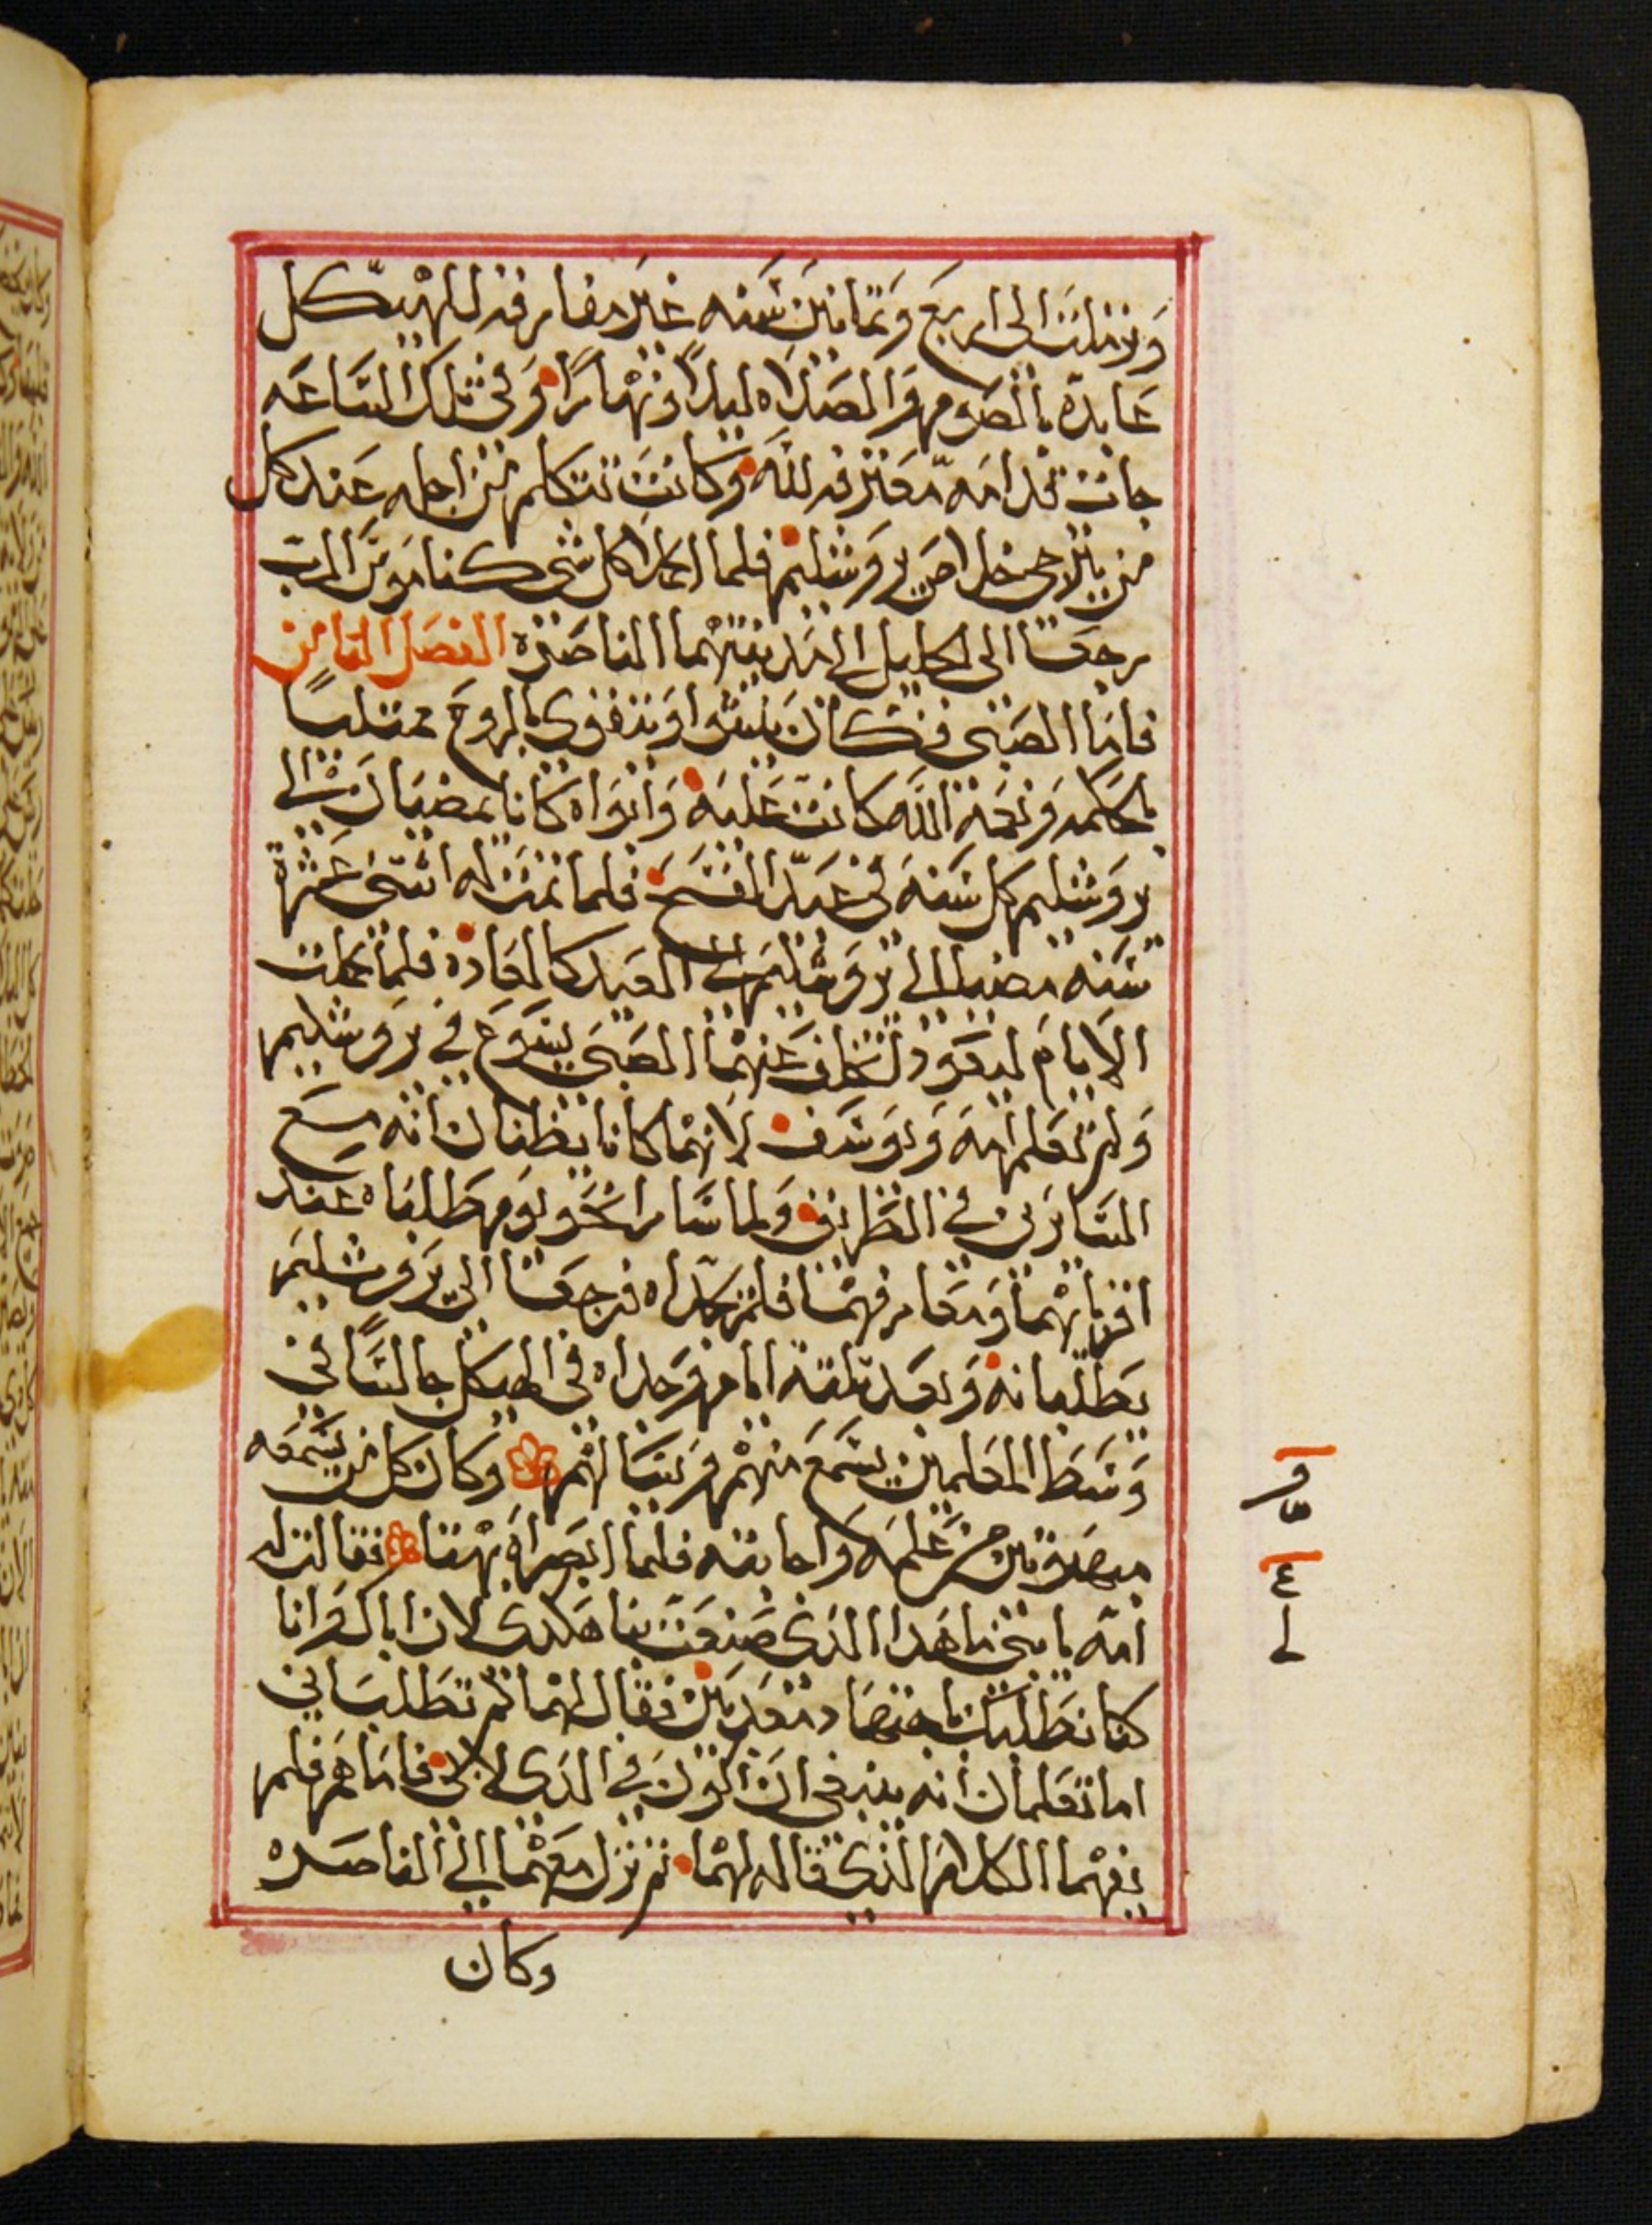 وترملت الى اربع وثمانين سنه غير مفارقه للهيكل
عابدة بالصوم والصلاه ليلاً ونهارًا وفي تلك الساعه
جات قدامه معترفه لله وكانت تتكلم من اجله عند كل
من يترجى خلاص يروشليم فلما اكملا كل شي كناموس الرب
رجعا الى الجليل الى مدينتهما الناصره الفصل الثامن
فاما الصبي فكان ينشوا ويتقوى بالروح ممتليًا
بالحكمه ونعمة الله كانت عليه وابواه كانا يمضيان الى
يروشليم كل سنه في عيد الفسح فلما تمت له اثنتى عشرة
سنه مضيا الى يروشليم الى العيد كالعادة فلما كملت
الايام ليعودو تخلف عنهما الصبي يسوع في يروشليم
ولم تعلم امه ويوسف لانهما كانا يظنان انه مع
السايرين في الطريق ولما سارا نحو يوم طلباه عند
اقربايهما ومعارفهما فلم يجداه فرجعا الى يروشليم
يطلبانه وبعد تلتة ايام وجداه في الهيكل جالسًا في
وسط المعلمين يسمع منهم ويسالهم وكان كل من يسمعه
مبهوتين من علمه واجابته فلما ابصراه بهتا فقالت له
امه يا بني ما هدا الدي صنعت بنا هكدى لان اباك وانا
كنا نطلبك باجتهاد معدبين فقال لهما لم تطلباني
اما تعلمان انه ينبغي ان اكون في الدي لابي فاما هم فلم
يفهما الكلام الذي قاله لهما ثم نزل معهما الى الناصره
وكان
٤